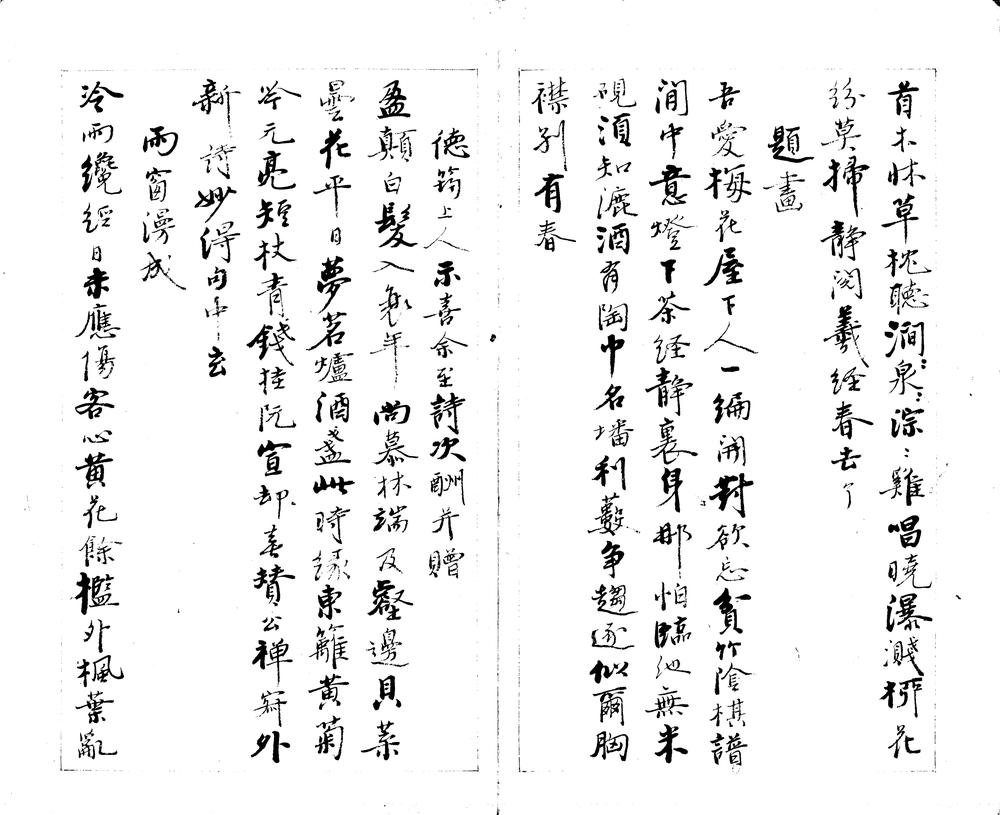 首木牀草枕聽澗泉〻淙〻雞唱曉瀑濺柳花
紛莫掃靜閱羲經春去了
題畫
吾愛梅花屋下人一編開對欲忘貧竹陰棋譜
閒中意燈下茶経靜裏身那怕臨池無米
硯須知漉酒有陶巾名墦利藪爭趨逐似爾胸
襟別有春
德筠上人示喜余至詩次酬并贈
盈顛白髮入衰年尚慕林端及壑邊貝葉
曇花平日夢茗爐酒盞此時緣東籬黃菊
岑元亮短杖青錢挂阮宣却喜贊公禅寂外
新詩妙得句中玄
雨窗漫成
冷雨纔経日未應傷客心黃花餘檻外楓葉亂